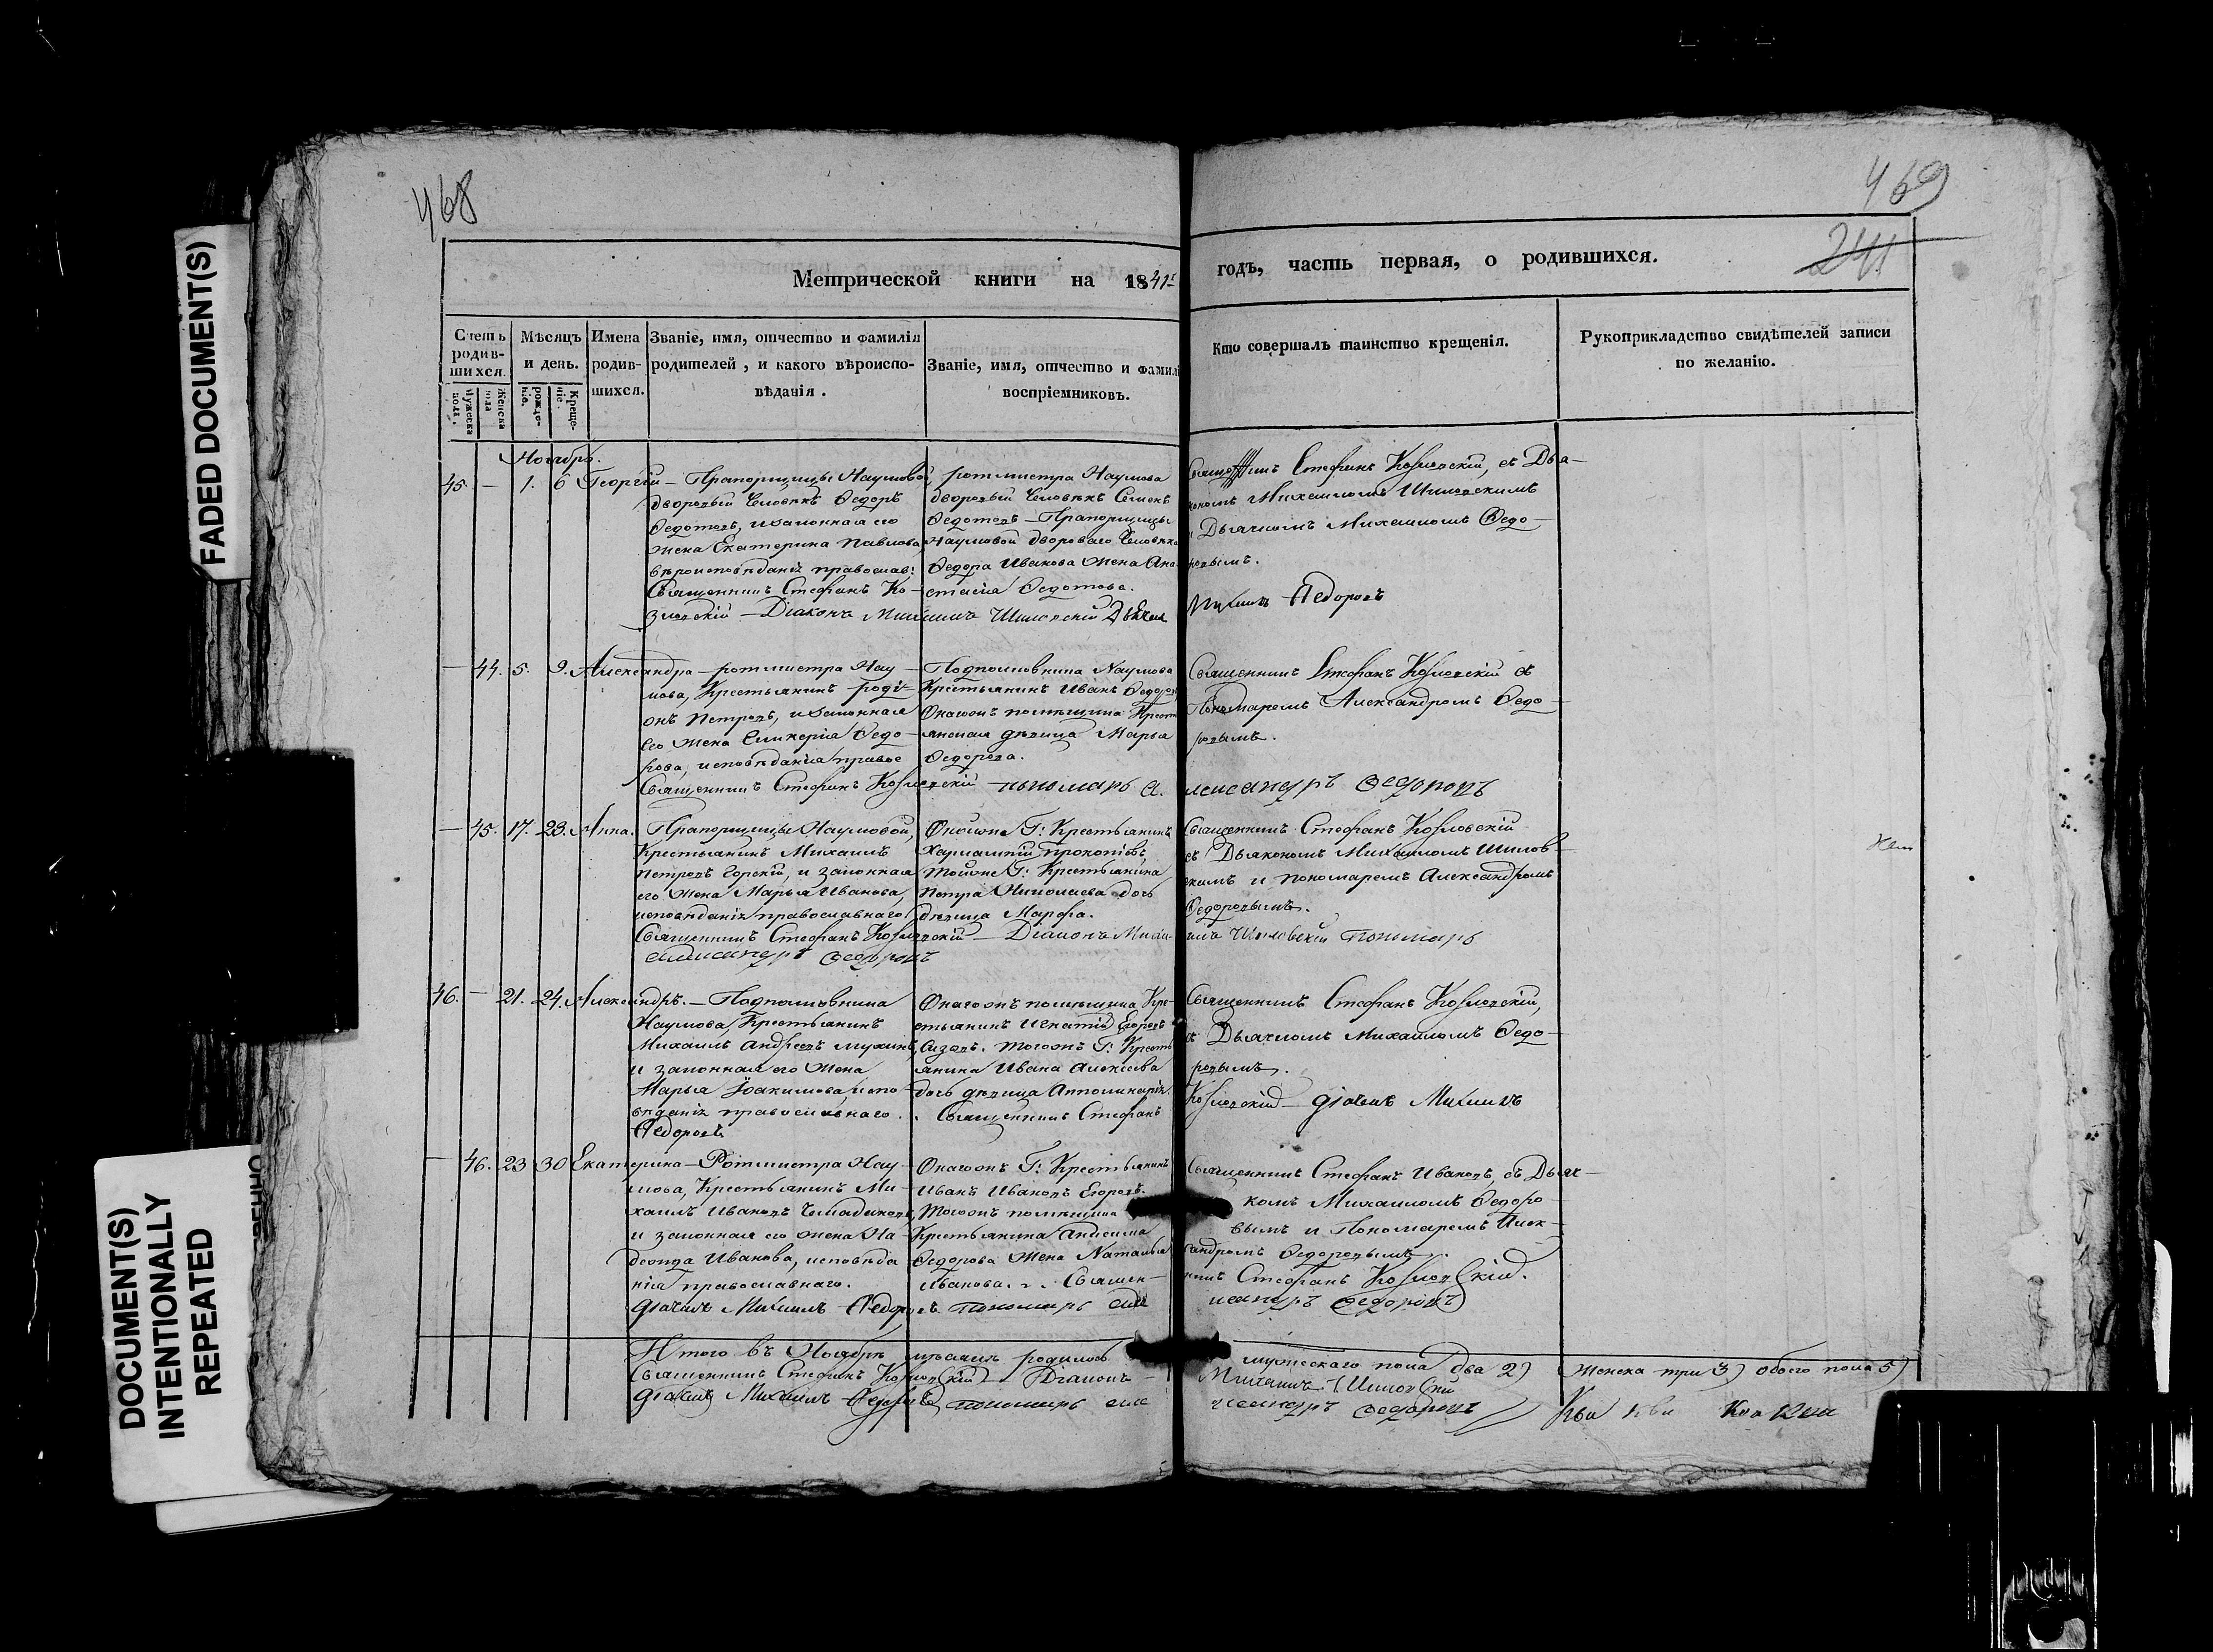 FADED DOCUMENT(S)
DOCUMENT(S)
INTENTIONALLY
REPEATED
468
469
241
Метрической книги на 1841 годъ, часть первая, о родившихся.
Счетъ родившихся.
Мужеска пола.
Женска пола
Мѣсяцъ и день.
рожденіе.
Крещеніе.
Имена родившихся.
Званіе, имя, отчество и фамилія родителей, и какого вѣроисповѣданія.
Званіе, имя, отчество и фамилі воспріемниковъ.
Кто совершалъ таинство крещенія.
Рукоприкладство свидѣтелей записи по желанію.
Ноябрь.
45. — 1. 6 Георгій —
Прапорщицы Наумовой,
дворовый Человѣкъ Ѳедоръ
Ѳедотовъ, и законная его
жена Екатерина Павлова,
вѣроисповѣданія православ:
ротмистра Наумова
дворовый Человѣкъ Семенъ
Ѳедотовъ — Прапорщицы
Наумовой двороваго Человѣка
Ѳедора Иванова жена Ана-
стасія Ѳедотова.
Стефанъ Козловскій, съ Діа-
кономъ Михаиломъ Шиловскимъ
и Дьячкомъ Михаиломъ Ѳедо-
ровымъ.
Священникъ Стефанъ Ко-
зловскій — Діаконъ Михаилъ Шиловскій Дьячекъ Михаилъ Ѳедоровъ
— 44. 5. 9. Александра —
ротмистра Нау-
мова, Крестьянинъ Родi-
онъ Петровъ, и законная
его жена Гликерія Ѳедо-
рова, исповѣданія правос
Подполковника Наумова
Крестьянинъ Иванъ Ѳедоровъ
Онагожъ помѣщика Крестъ
янская дѣвица Марья
Ѳедорова.
Священникъ Стефанъ Козловскій съ
Пономаремъ Александромъ Ѳедо-
ровымъ.
Священникъ Стефанъ Козловскій пономарь Александръ Ѳедоровъ
— 45. 17. 23. Анна.
Прапорщицы Наумовой,
Крестьянинъ Михаилъ
Петровъ Горскій, и законная
его жена Марья Иванова,
исповѣданія православнаго
Онойже Г: Крестьянинъ
Харлампій Прокопіевъ
Тойже Г: Крестьянина
Петра Николаева дочь
дѣвица Марѳа.
Священникъ Стефанъ Козловскій
съ Дьякономъ Михаиломъ Шилов-
скимъ и пономаремъ Александромъ
Ѳедоровымъ.
Священникъ Стефанъ Козловскій — Діаконъ Михаилъ Шиловскій Пономарь
Александръ Ѳедоровъ
46. — 21. 24. Александръ. —
Подполковника
Наумова, Крестьянинъ
Михаилъ Андреевъ Мухинъ,
и законная его жена
Марья Іоакимова, испо-
вѣданія православнаго.
Онагожъ помѣщика Кре-
стьянинъ Игнатій Егоровъ
Сизовъ. Тогожъ Г: Кресть
янина Ивана Алексѣева
дочь дѣвица Апполинарія.
Священникъ Стефанъ Козловскій,
съ Дьячкомъ Михаиломъ Ѳедо-
ровымъ.
Священникъ Стефанъ Козловскій — дьячекъ Михаилъ
Ѳедоровъ
— 46. 23 30 Екатерина —
Ротмистра Нау-
мова, Крестьянинъ Ми-
хаилъ Ивановъ
и законная его жена На-
дежда Иванова, исповѣда
нія православнаго.
Онагожъ Г: Крестьянинъ
Иванъ Ивановъ Егоровъ.
Тогожъ помѣщика
Крестьянина Анисима
Ѳедорова жена Наталья
Иванова.
Священникъ Стефанъ Ивановъ, съ Дьяч-
комъ Михаиломъ Ѳедоро-
вымъ и Пономаремъ Алек-
сандромъ Ѳедоровымъ.
Священ-
никъ Стефанъ Козловскій.
дьячекъ Михаилъ Ѳедоровъ. пономарь Александръ Ѳедоровъ
Итого въ Ноябрѣ мѣсяцѣ родилось мужескаго пола два 2) Женска три 3) обоего пола 5)
Священникъ Стефанъ Козловскій Діаконъ Михаилъ Шиловскій
дьячекъ Михаилъ Ѳедоровъ пономарь Александръ Ѳедоровъ